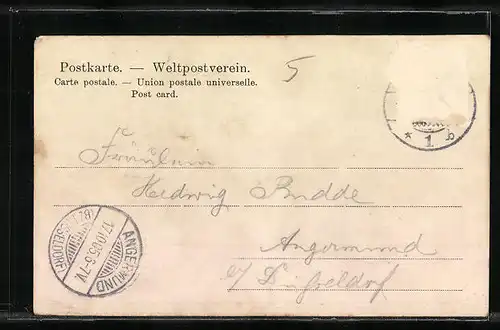 Postkarte. — Weltpostverein.
Carte postale. — Union postale universelle.
Post card.
5
* 1 b
Fräulein
Hedwig Budde
Angermund
b/ Düsseldorf
ANGERMUND
17.10.05.6-7V.